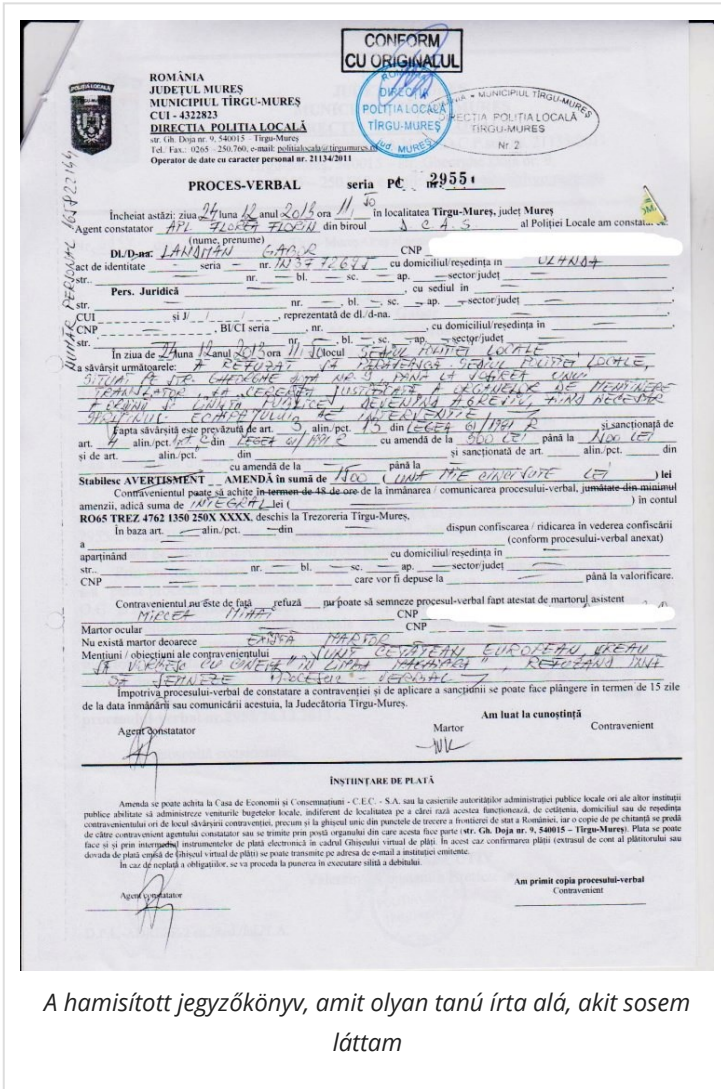 CONFORM
CU ORIGINALUL
ROMÂNIA
JUDEŢUL MUREŞ
MUNICIPIUL TÎRGU-MUREŞ
CUI - 4322823
DIRECŢIA POLIŢIA LOCALĂ
str. Gh. Doja nr. 9, 540015 – Tîrgu-Mureş
Tel. Fax.: 0265 – 250.760, e-mail: politialocala@tirgumures.ro
Operator de date cu caracter personal nr. 21134/2011
POLIŢIA LOCALĂ
ROMÂNIA
DIRECŢIA
POLIŢIA LOCALĂ
TÎRGU-MUREŞ
Jud. MUREŞ
MUNICIPIUL TÎRGU-MUREŞ
DIRECŢIA POLIŢIA LOCALĂ
TIRGU-MUREŞ
Nr. 2
PROCES-VERBAL seria PC nr. 2955
NUMĂR PERSONAL
Încheiat astăzi: ziua 24 luna 12 anul 2013 ora 11 50 în localitatea Tîrgu-Mureş, judeţ Mureş
Agent constatator APL FLOREA FLORIN din biroul al Poliţiei Locale am constatat
(nume, prenume)
Dl./D-na: LANDMAN GABOR CNP
act de identitate seria nr. cu domiciliul/reşedinţa in OLANDA
str. nr. bl. sc. ap. sector/judeţ
Pers. Juridică , cu sediul in
str. nr. , bl. , sc. ap. sector/judeţ
CUI şi J/ / / , reprezentată de dl./d-na.
CNP , BI/CI seria , nr. , cu domiciliu/reşedinta in
str. nr. , bl. sc. ap. sector/judeţ
În ziua de 24 luna 12 anul 2013 ora 11 50 locul SEDIUL POLIŢIEI LOCALE
a săvârşit următoarele: A REFUZAT SĂ PĂRĂSEASCĂ SEDIUL POLIŢIEI LOCALE,
SITUAT PE STR. GHEORGHE DOJA NR. 9, PÂNĂ LA SOSIREA UNUI
TRANSLATOR, LA CEREREA ORGANELOR DE MENŢINERE
A ORDINII ŞI LINIŞTII PUBLICE, DEVENIND AGRESIV, FIIND NECESAR
SPRIJINUL ECHIPAJULUI DE INTERVENŢIE
Fapta săvârşită este prevăzută de art. 3, alin./pct. 13 din LEGEA 61/1991 R şi sancţionată de
art. 4 alin./pct. din LEGEA 61/1991 R cu amendă de la 500 LEI până la 1500 LEI
şi de art. alin./pct. din şi sancţionată de art. alin./pct. din
cu amendă de la până la
Stabilesc AVERTISMENT AMENDĂ în sumă de 1500 ( UNA MIE CINCI SUTE LEI ) lei
Contravenientul poate să achite in termen de 48 de ore de la inmânarea / comunicarea procesului-verbal, jumătate din minimul
amenzii, adică suma de INTEGRAL lei ( ) in contul
RO65 TREZ 4762 1350 250X XXXX, deschis la Trezoreria Tîrgu-Mureş.
În baza art. alin./pct. din dispun confiscarea / ridicarea in vederea confiscării
a (conform procesului-verbal anexat)
aparţinând cu domiciliul/reşedinţa in
str. nr. bl. sc. ap. sector/judeţ
CNP care vor fi depuse la până la valorificare.
Contravenientul nu este de faţă refuză nu poate să semneze procesul-verbal fapt atestat de martorul asistent
MIRCEA MIHAI CNP
Martor ocular CNP
Nu există martor deoarece EXISTĂ MARTOR
Menţiuni / obiecţiuni ale contravenientului "SUNT CETĂŢEAN EUROPEAN VREAU
SĂ VORBESC CU CINEVA ÎN LIMBA MAGHIARĂ", REFUZÂND ÎNSĂ
SĂ SEMNEZE PROCESUL-VERBAL
Împotriva procesului-verbal de constatare a contravenţiei şi de aplicare a sancţiunii se poate face plângere în termen de 15 zile
de la data inmânării sau comunicării acestuia, la Judecătoria Tîrgu-Mureş.
Am luat la cunoştinţă
Agent constatator Martor Contravenient
ÎNŞTIINŢARE DE PLATĂ
Amenda se poate achita la Casa de Economii şi Consemnaţiuni - C.E.C. - S.A. sau la casieriile autorităţilor administraţiei publice locale ori ale altor instituţii
publice abilitate să administreze veniturile bugetelor locale, indiferent de localitatea pe a cărei rază acestea funcţionează, de cetăţenia, domiciliul sau de reşedinţa
contravenientului ori de locul săvârşirii contravenţiei, precum şi la ghişeul unic din punctele de trecere a frontierei de stat a României, iar o copie de pe chitanţă se predă
de către contravenient agentului constatator sau se trimite prin poştă organului din care acesta face parte (str. Gh. Doja nr. 9, 540015 – Tîrgu-Mureş). Plata se poate
face si şi prin intermediul instrumentelor de plată electronică in cadrul Ghişeului virtual de plăţi. În acest caz confirmarea plăţii (extrasul de cont al plătitorului sau
dovada de plată emisă de Ghişeul virtual de plăţi) se poate transmite pe adresa de e-mail a instituţiei emitente.
În caz de neplată a obligaţiilor, se va proceda la punerea in executare silită a debitului.
Am primit copia procesului-verbal
Agent constatator Contravenient
A hamisított jegyzőkönyv, amit olyan tanú írta alá, akit sosem
láttam